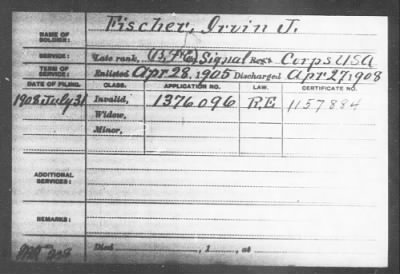 NAME OF SOLDIER: Fischer, Irvin J.
SERVICE: Late rank, Signal Reg't Corps USA
TERM OF SERVICE: Enlisted Apr 28, 1905 Discharged Apr 27 1908
DATE OF FILING. CLASS. APPLICATION NO. LAW. CERTIFICATE NO.
1908 July 31 Invalid, 1376096 RE 1157884
Widow,
Minor,
ADDITIONAL SERVICES:
REMARKS:
Died , 1 , at